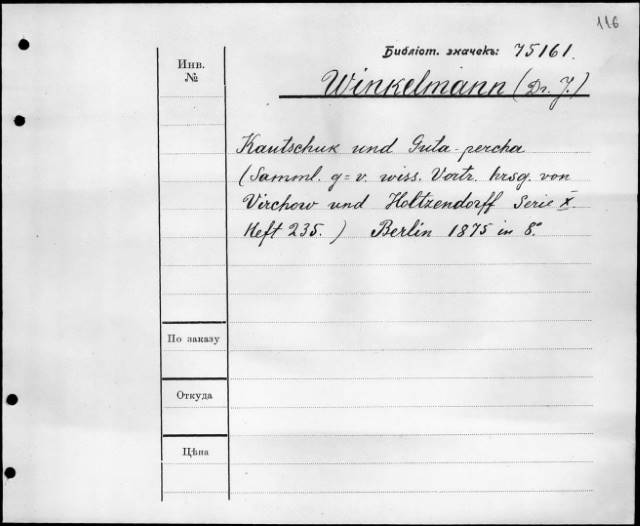 116
Библіот. значекъ: 75161.
Инв.
№
Winkelmann (Dr. J.)
Kautschuk und Guta-percha
(Samml. g=v. wiss. Vortr. hrsg. von
Virchow und Holtzendorff Serie X.
Heft 235.) Berlin 1875 in 8°.
По заказу
Откуда
Цѣна